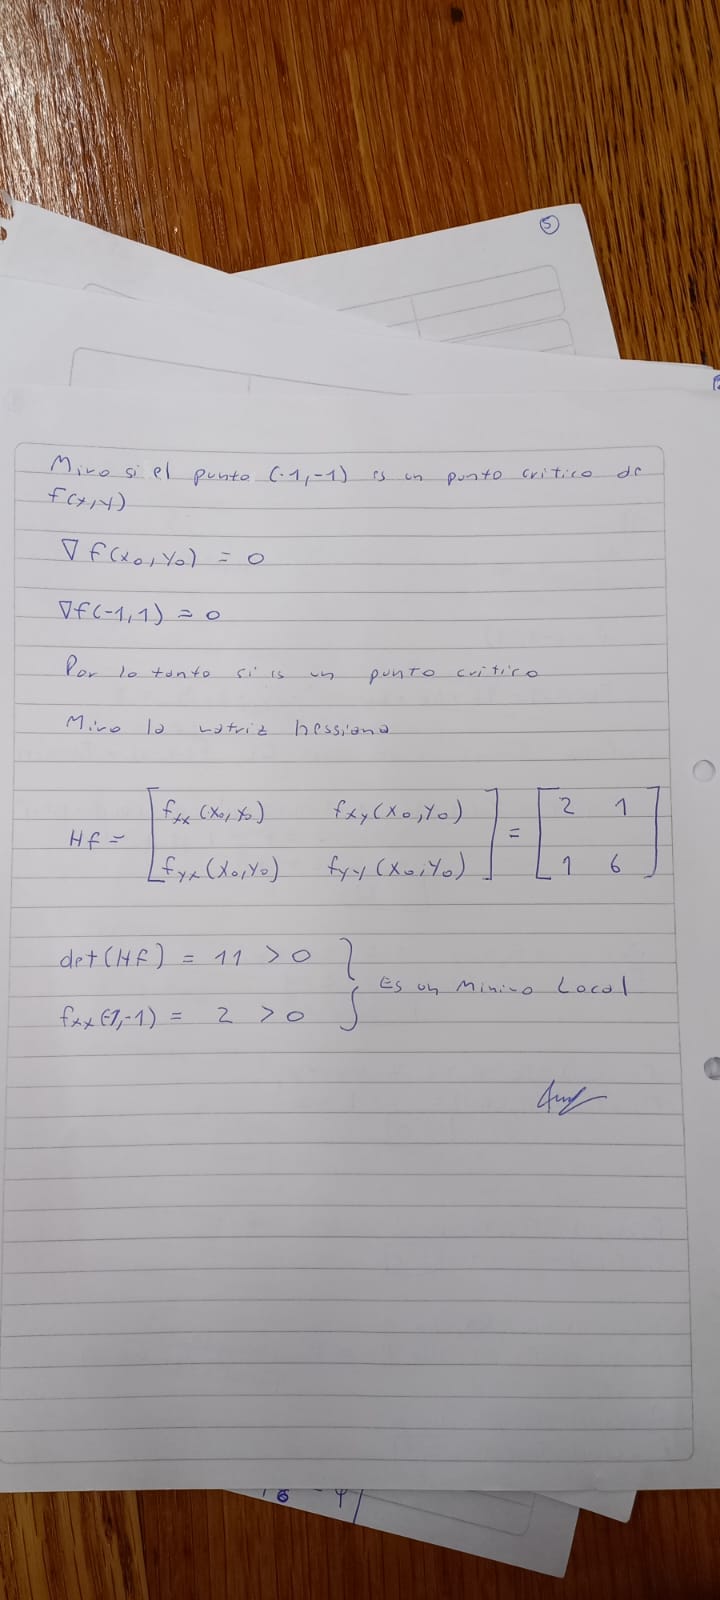 5
Miro si el punto (-1,-1) es un punto critico de
f(x,y)
∇ f(x₀,y₀) = 0
∇f(-1,1) = 0
Por lo tanto si es un punto critico
Miro la matriz hessiana
Hf = [ fxx (x₀,y₀) fxy(x₀,y₀) ; fyx(x₀,y₀) fyy(x₀,y₀) ] = [ 2 1 ; 1 6 ]
det(Hf) = 11 > 0
fxx(-1,-1) = 2 > 0 } Es un Minimo Local